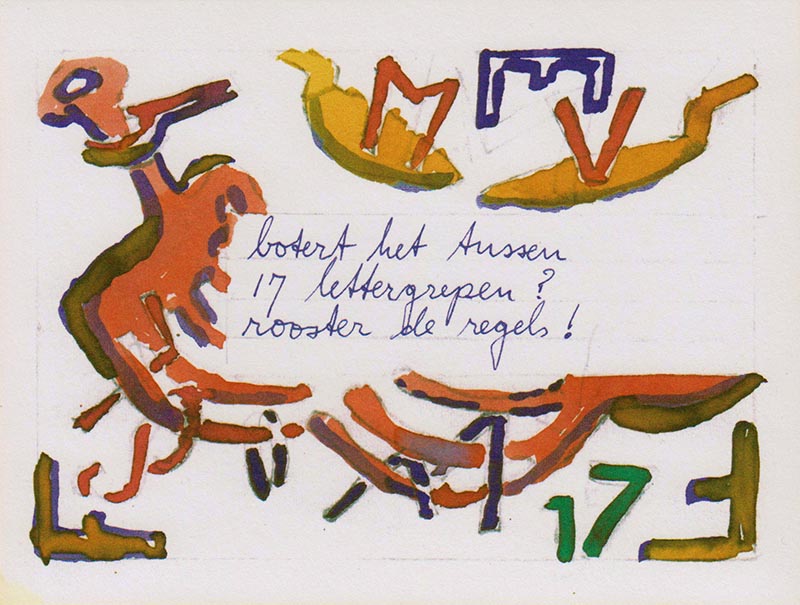 M V
botert het tussen
17 lettergrepen?
rooster de regels!
17